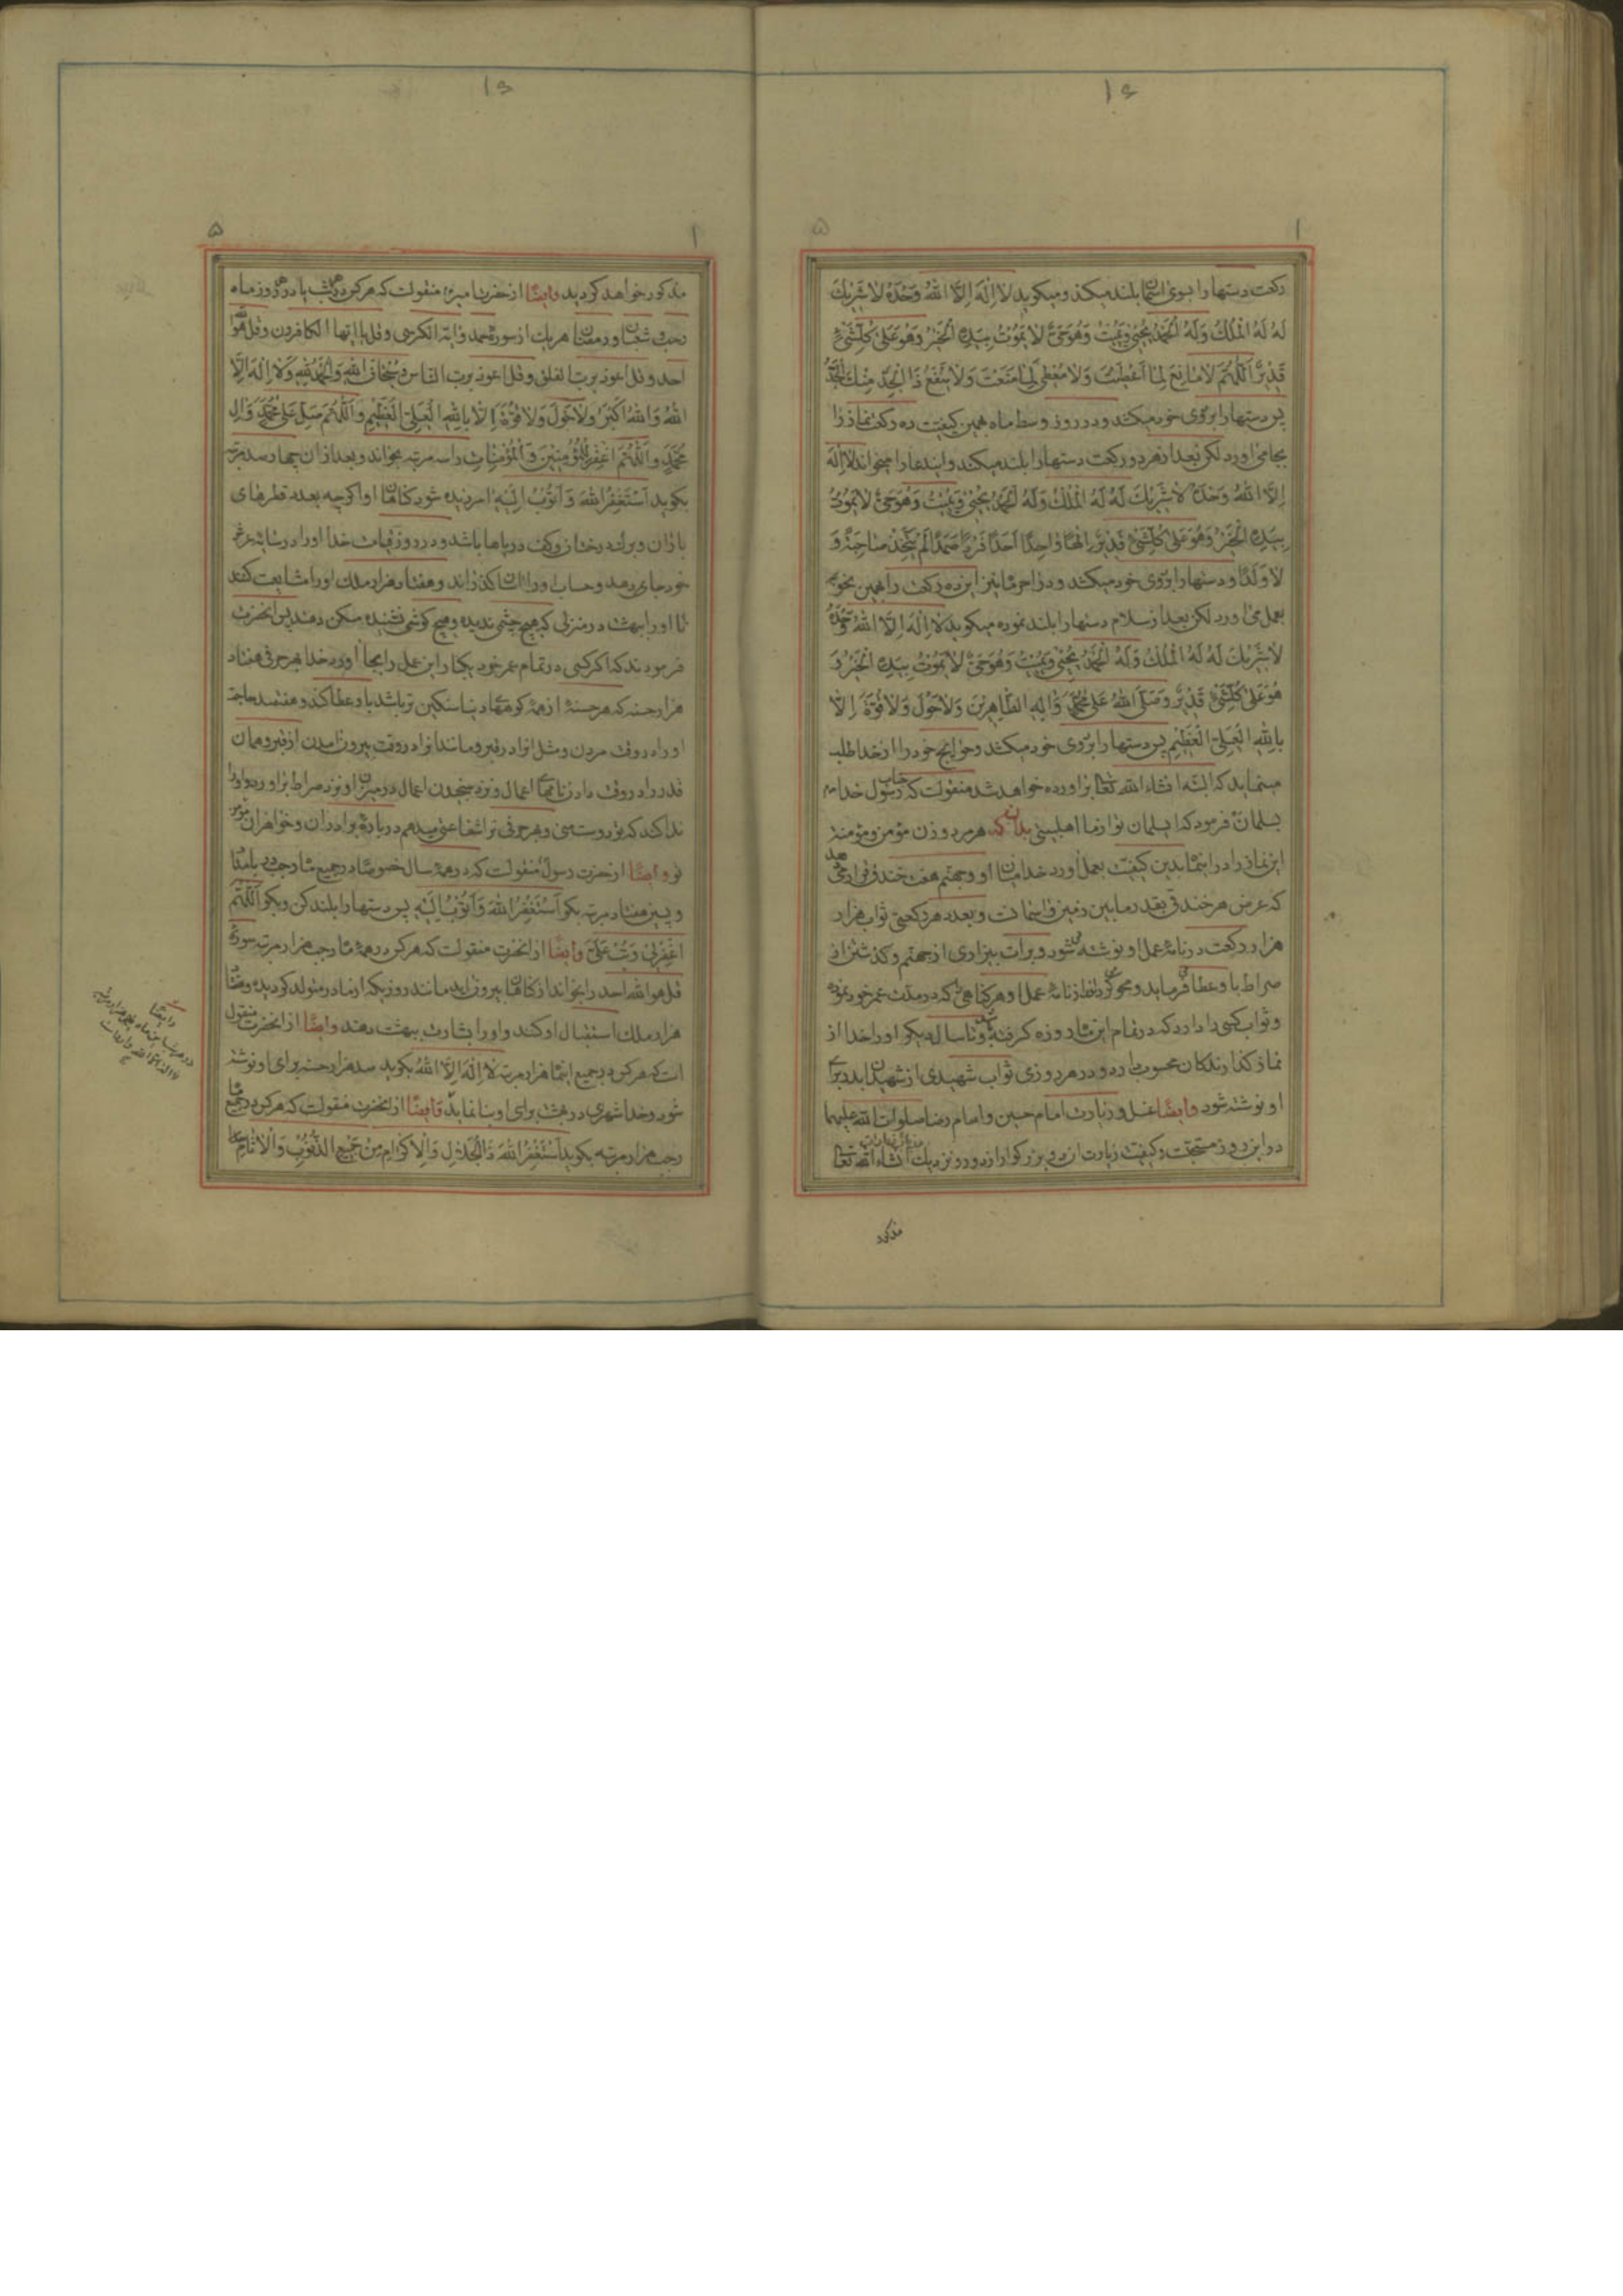 ۱۶
۱ ۵
ركعت دستها را بسوی اسمان بلند میكند و میكوید لا اِلٰهَ اِلَّا اللهُ وَحْدَهُ لا شَرِيكَ
لَهُ لَهُ الْمُلْكُ وَلَهُ الْحَمْدُ يُحْيِي وَيُمِيتُ وَهُوَ حَيٌّ لا يَمُوتُ بِيَدِهِ الْخَيْرُ وَهُوَ عَلىٰ كُلِّ شَيْءٍ
قَدِيرٌ اَللّٰهُمَّ لا مانِعَ لِما اَعْطَيْتَ وَلا مُعْطِيَ لِما مَنَعْتَ وَلا يَنْفَعُ ذَا الْجَدِّ مِنْكَ الْجَدُّ
پس دستها را بروی خود میكشد و در روز وسط ماه بهمین كیفیت ده ركعت نماز را
بجا می اورد لكن بعد از هر دو ركعت دستها را بلند میكند و ایندعا را میخواند لا اِلٰهَ
اِلَّا اللهُ وَحْدَهُ لا شَرِيكَ لَهُ لَهُ الْمُلْكُ وَلَهُ الْحَمْدُ يُحْيِي وَيُمِيتُ وَهُوَ حَيٌّ لا يَمُوتُ
بِيَدِهِ الْخَيْرُ وَهُوَ عَلىٰ كُلِّ شَيْءٍ قَدِيرٌ اِلٰهًا واحِدًا اَحَدًا فَرْدًا صَمَدًا لَمْ يَتَّخِذْ صاحِبَةً وَ
لا وَلَدًا و دستها را بروی خود میكشد و در اخر ماه نیز این ده ركعت را بهمین نحو
بعمل می اورد لكن بعد از سلام دستها را بلند نموده میكوید لا اِلٰهَ اِلَّا اللهُ وَحْدَهُ
لا شَرِيكَ لَهُ لَهُ الْمُلْكُ وَلَهُ الْحَمْدُ يُحْيِي وَيُمِيتُ وَهُوَ حَيٌّ لا يَمُوتُ بِيَدِهِ الْخَيْرُ وَ
هُوَ عَلىٰ كُلِّ شَيْءٍ قَدِيرٌ وَصَلَّى اللهُ عَلىٰ مُحَمَّدٍ وَآلِهِ الطَّاهِرِينَ وَلا حَوْلَ وَلا قُوَّةَ اِلّا
بِاللهِ الْعَلِيِّ الْعَظِيمِ پس دستها را بروی خود میكشد و حوایج خود را از خدا طلب
مینماید كه البته انشاء الله تعا براورده خواهد شد منقولست كه جناب رسول خدا
بسلمان فرمود كه ایسلمان تو از ما اهلبیتی بدان كه هر مرد و زن مؤمن و مؤمنه
این نماز را در اینماه بدین كیفیت بعمل اورد خدا میان او و جهنم هفت خندق قرار میدهد
كه عرض هر خندق بقدر ما بین زمین و اسمانست و بعدد هر ركعتی ثواب هزار
هزار ركعت در نامهٔ عمل او نوشته میشود و برات بیزاری از جهنم و كذشتن از
صراط باو عطا میفرماید و محو كرداند از نامهٔ عمل او هر كناهی را كه در مدت عمر خود نموده
و ثواب كسی را دارد كه در تمام این ماه روزه كرفته باشد و تا سال دیكر او را خدا از
نماز كذارندكان محسوب دارد و در هر روزی ثواب شهیدی از شهیدان بدر برای
او نوشته شود وایضًا غسل و زیارت امام حسین و امام رضا صلوات الله علیهما
در این روز مستحبست و كیفیت زیارت ان دو بزركوار از دور و نزدیك انشاء الله تعا
مذكور
۱۶
۱ ۵
مذكور خواهد كردید وایضًا از حضرت منقولست كه هر كس در هر شب یا در هر روز ماه
رجب و شعبان و رمضان هر یك از سوره حمد و ایة الكرسی و قل یا ایها الكافرون و قل هو الله
احد و قل اعوذ برب الفلق و قل اعوذ برب الناس و سُبْحانَ اللهِ وَالْحَمْدُ لِلّٰهِ وَلا اِلٰهَ اِلَّا
اللهُ وَاللهُ اَكْبَرُ وَلا حَوْلَ وَلا قُوَّةَ اِلّا بِاللهِ الْعَلِيِّ الْعَظِيمِ و اَللّٰهُمَّ صَلِّ عَلىٰ مُحَمَّدٍ وَآلِ
مُحَمَّدٍ و اَللّٰهُمَّ اغْفِرْ لِلْمُؤْمِنِينَ وَالْمُؤْمِناتِ را سه مرتبه بخواند و بعد از ان چهار صد مرتبه
بكوید اَسْتَغْفِرُ اللهَ وَاَتُوبُ اِلَيْهِ امرزیده شود كناهان او اكرچه بعدد قطرهای
باران و برك درختان و كف دریاها باشد و در روز قیامت خدا او را در سایه عرش
خود جای دهد و حساب او را اسان كذراند و هفتاد هزار ملك او را مشایعت كنند
تا او را ببهشت در منزلی كه هیچ چشمی ندیده و هیچ كوشی نشنیده مسكن دهند پس انحضرت
فرمودند كه اكر كسی در تمام عمر خود یكبار این عمل را بجا اورد خدا بهر حرفی هفتاد
هزار حسنه كه هر حسنهٔ از همهٔ كوههای دنیا سنكین تر باشد باو عطا كند و هفتصد حاجة
او را در وقت مردن و مثل انرا در قبر و مانند انرا در وقت بیرون امدن از قبر و همان
قدر را در وقت دادن نامهای اعمال و نزد سنجیدن اعمال در میزان و نزد صراط براورد و او را
ندا كند كه تو دوست منی و بهر حرفی ترا شفاعتی میدهم در بارهٔ برادران و خواهران مؤمن
تو وایضًا از حضرت رسول منقولست كه در همهٔ سال خصوصًا در جمیع ماه رجب در بامداد
و پسین هفتاد مرتبه بكو اَسْتَغْفِرُ اللهَ وَاَتُوبُ اِلَيْهِ پس دستها را بلند كن و بكو اَللّٰهُمَّ
اغْفِرْ لِي وَتُبْ عَلَيَّ وایضًا از انحضرت منقولست كه هر كس در همهٔ ماه رجب هزار مرتبه سورهٔ
قل هو الله احد را بخواند از كناهان بیرون اید مانند روزیكه از مادر متولد كردیده و هفتاد
هزار ملك استقبال او كنند و او را بشارت ببهشت دهند وایضًا از انحضرت منقول
است كه هر كس در جمیع اینماه هزار مرتبه لا اِلٰهَ اِلَّا اللهُ بكوید صد هزار حسنه برای او نوشته
شود و خدا شهری در بهشت برای او بنا نماید وایضًا از انحضرت منقولست كه هر كس در جمیع ماه
رجب هزار مرتبه بكوید اَسْتَغْفِرُ اللهَ ذَا الْجَلالِ وَالْاِكْرامِ مِنْ جَمِيعِ الذُّنُوبِ وَالْآثامِ
وایضًا